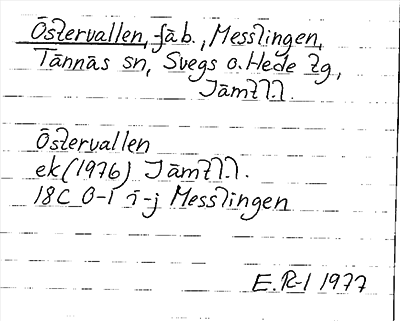 Östervallen, fäb., Messlingen,
Tännäs sn, Svegs o. Hede tg,
Jämtl.
Östervallen
ek (1976) Jämtl.
18C 0-1 i-j Messlingen
E. R-l 1977